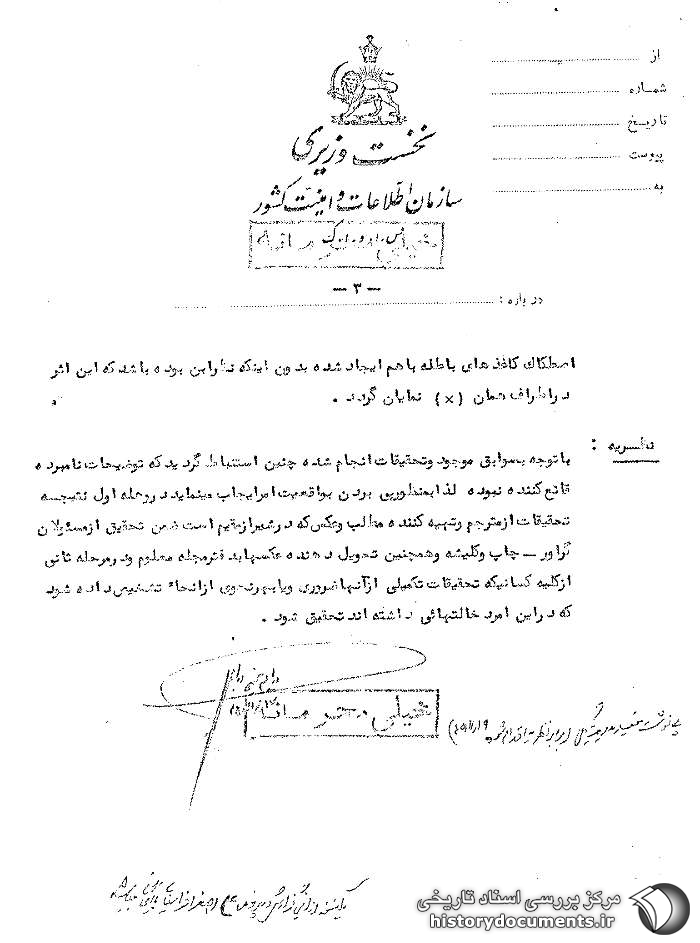 از
شماره
تاریخ
پیوست
به
نخست وزیری
سازمان اطلاعات و امنیت کشور
خیلی محرمانه
- ۳ -
درباره :
اصطکاک کاغذ های باطله باهم ایجاد شده بدون اینکه نظر این بوده باشد که این اثر
در اطراف همان (×) نمایان گردد .
نظریه :
با توجه بسوابق موجود وتحقیقات انجام شده چنین استنباط گردید که توضیحات نامبرده
قانع کننده نبوده لذا بمنظور پی بردن بواقعیت امر ایجاب مینماید در وحله اول نتیجه
تحقیقات از مترجم وتهیه کننده مطالب وعکس که در شیراز مقیم است ضمن تحقیق از مسئولان
گراور - چاپ وکلیشه وهمچنین تحویل دهنده عکسها به دفتر مجله معلوم و در مرحله ثانی
از کلیه کسانیکه تحقیقات تکمیلی از آنها ضروری ویا بهر نحوی از انحاء تشخیص داده شود
که در این امر دخالتهائی داشته اند تحقیق شود .
خیلی محرمانه
مرکز بررسی اسناد تاریخی
historydocuments.ir